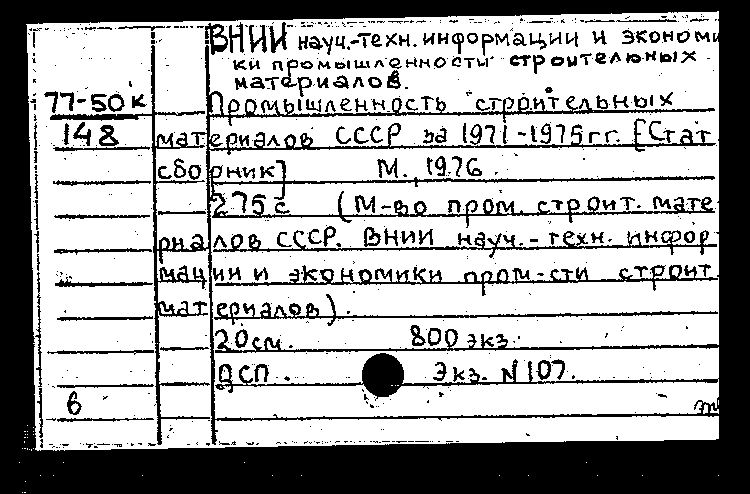 ВНИИ науч.-техн. информации и экономи
ки промышленности строительных
материалов.
77-50к Промышленность строительных
148 материалов СССР за 1971-1975гг. [Стат
сборник] М., 1976.
275с (М-во пром. строит. мате
риалов СССР. ВНИИ науч.-техн. инфор
мации и экономики пром-сти строит.
материалов).
20см. 800 экз.
ДСП. Экз. N107.
в